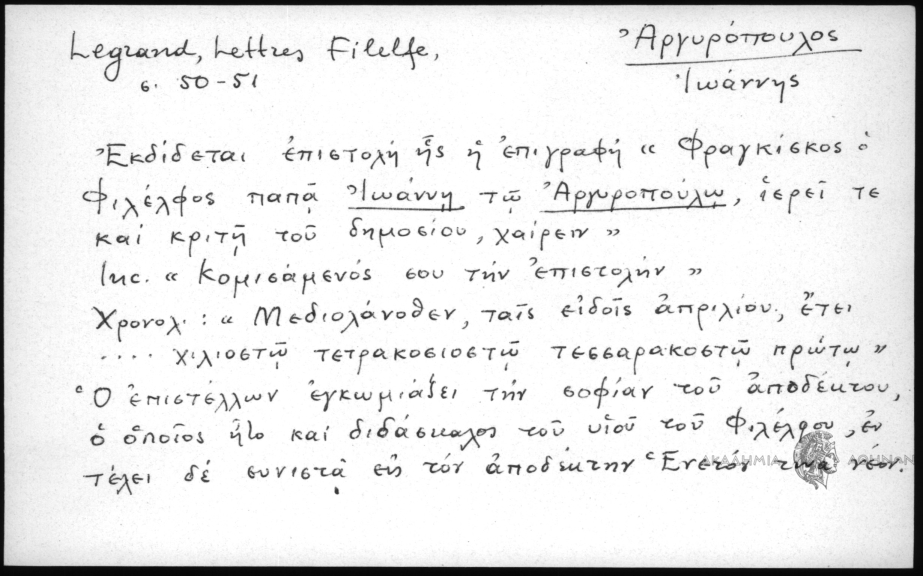 Legrand, Lettres Filelfe,
σ. 50-51
Ἀργυρόπουλος
Ἰωάννης
Ἐκδίδεται ἐπιστολή ἧς ἡ ἐπιγραφή « Φραγκίσκος ὁ
Φιλέλφος παπᾷ Ἰωάννῃ τῷ Ἀργυροπούλῳ, ἱερεῖ τε
καί κριτῇ τοῦ δημοσίου, χαίρειν »
Inc. « Κομισάμενός σου τήν ἐπιστολήν »
Χρονολ: « Μεδιολάνοθεν, ταῖς εἰδοῖς ἀπριλίου, ἔτει
.... χιλιοστῷ τετρακοσιοστῷ τεσσαρακοστῷ πρώτῳ »
Ὁ ἐπιστέλλων ἐγκωμιάζει τήν σοφίαν τοῦ ἀποδέκτου,
ὁ ὁποῖος ἦτο καί διδάσκαλος τοῦ υἱοῦ τοῦ Φιλέλφου, ἐν
τέλει δέ συνιστᾷ εἰς τόν ἀποδέκτην Ἑνετόν τινα νέον.
ΑΚΑΔΗΜΙΑ ΑΘΗΝΩΝ